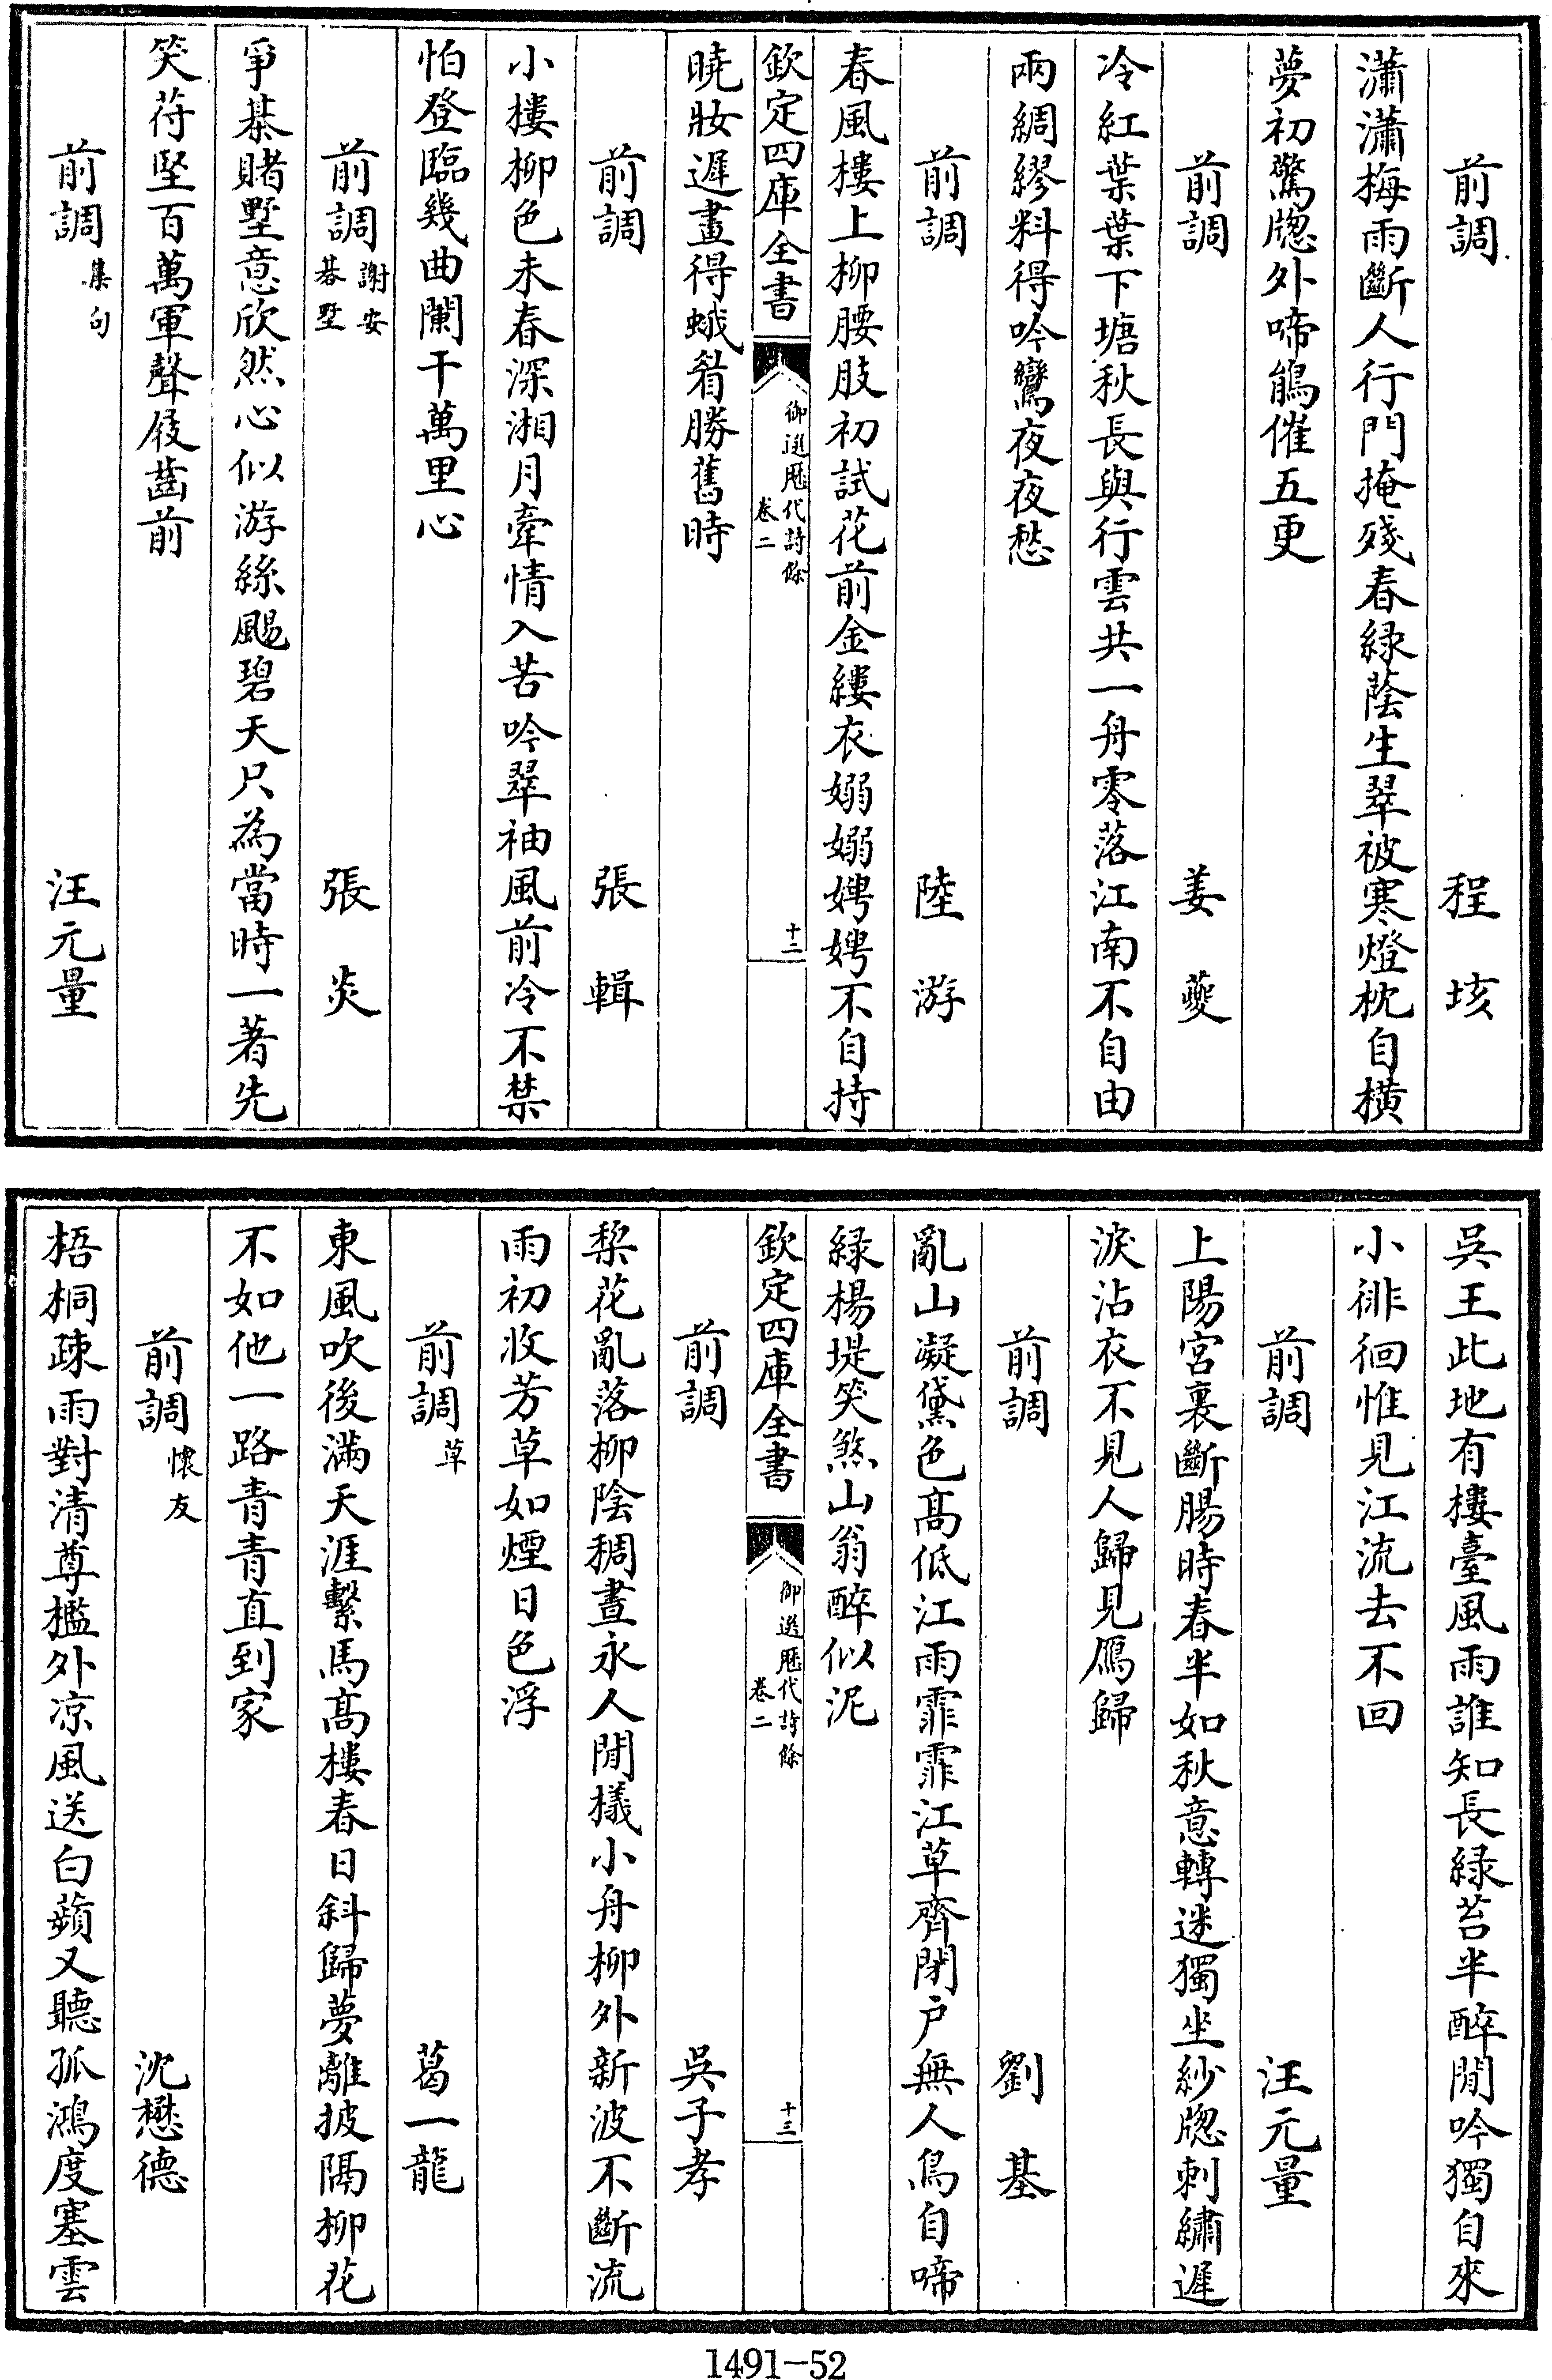 前調 程垓
瀟瀟梅雨斷人行門掩殘春綠蔭生翠被寒燈枕自橫
夢初驚牕外啼鵑催五更
前調 姜夔
冷紅葉葉下塘秋長與行雲共一舟零落江南不自由
兩綢繆料得吟鸞夜夜愁
前調 陸游
春風樓上柳腰肢初試花前金縷衣嫋嫋娉娉不自持
欽定四庫全書 御選歷代詩餘 卷二 十二
曉妝遲畫得蛾眉勝舊時
前調 張輯
小樓柳色未春深湘月牽情入苦吟翠袖風前冷不禁
怕登臨幾曲闌干萬里心
前調 謝安棊墅 張炎
爭棊賭墅意欣然心似游絲颺碧天只為當時一著先
笑苻堅百萬軍聲屐齒前
前調 集句 汪元量
吳王此地有樓臺風雨誰知長綠苔半醉閒吟獨自來
小徘徊惟見江流去不回
前調 汪元量
上陽宮裏斷腸時春半如秋意轉迷獨坐紗牕刺繡遲
淚沾衣不見人歸見鴈歸
前調 劉基
亂山凝黛色高低江雨霏霏江草齊閉戶無人鳥自啼
綠楊堤笑煞山翁醉似泥
欽定四庫全書 御選歷代詩餘 卷二 十三
前調 吳子孝
棃花亂落柳陰稠晝永人閒檥小舟柳外新波不斷流
雨初收芳草如煙日色浮
前調 草 葛一龍
東風吹後滿天涯繫馬高樓春日斜歸夢離披隔柳花
不如他一路青青直到家
前調 懷友 沈懋德
梧桐疎雨對清尊檻外凉風送白蘋又聽孤鴻度塞雲
1491-52